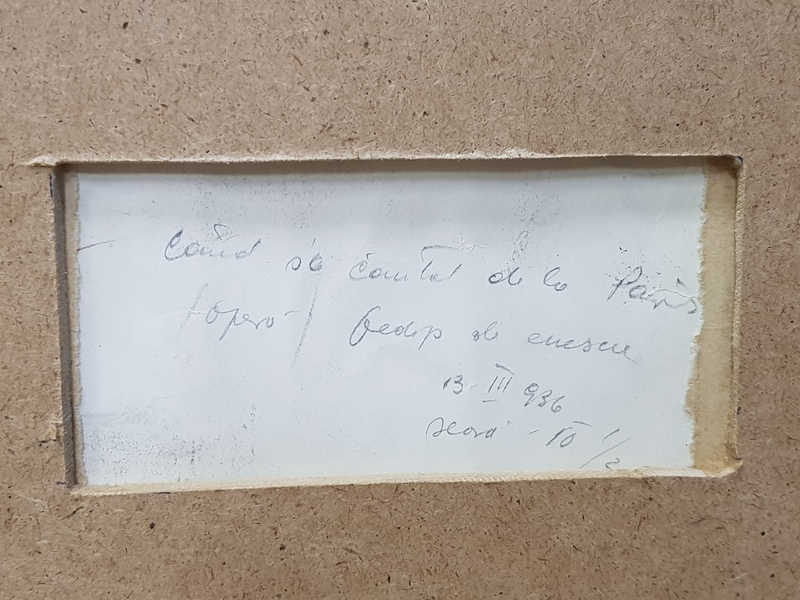 Când s'a cântat de la Paris
/opera/ Oedip de enescu
13-III 936
seara - 10 1/2